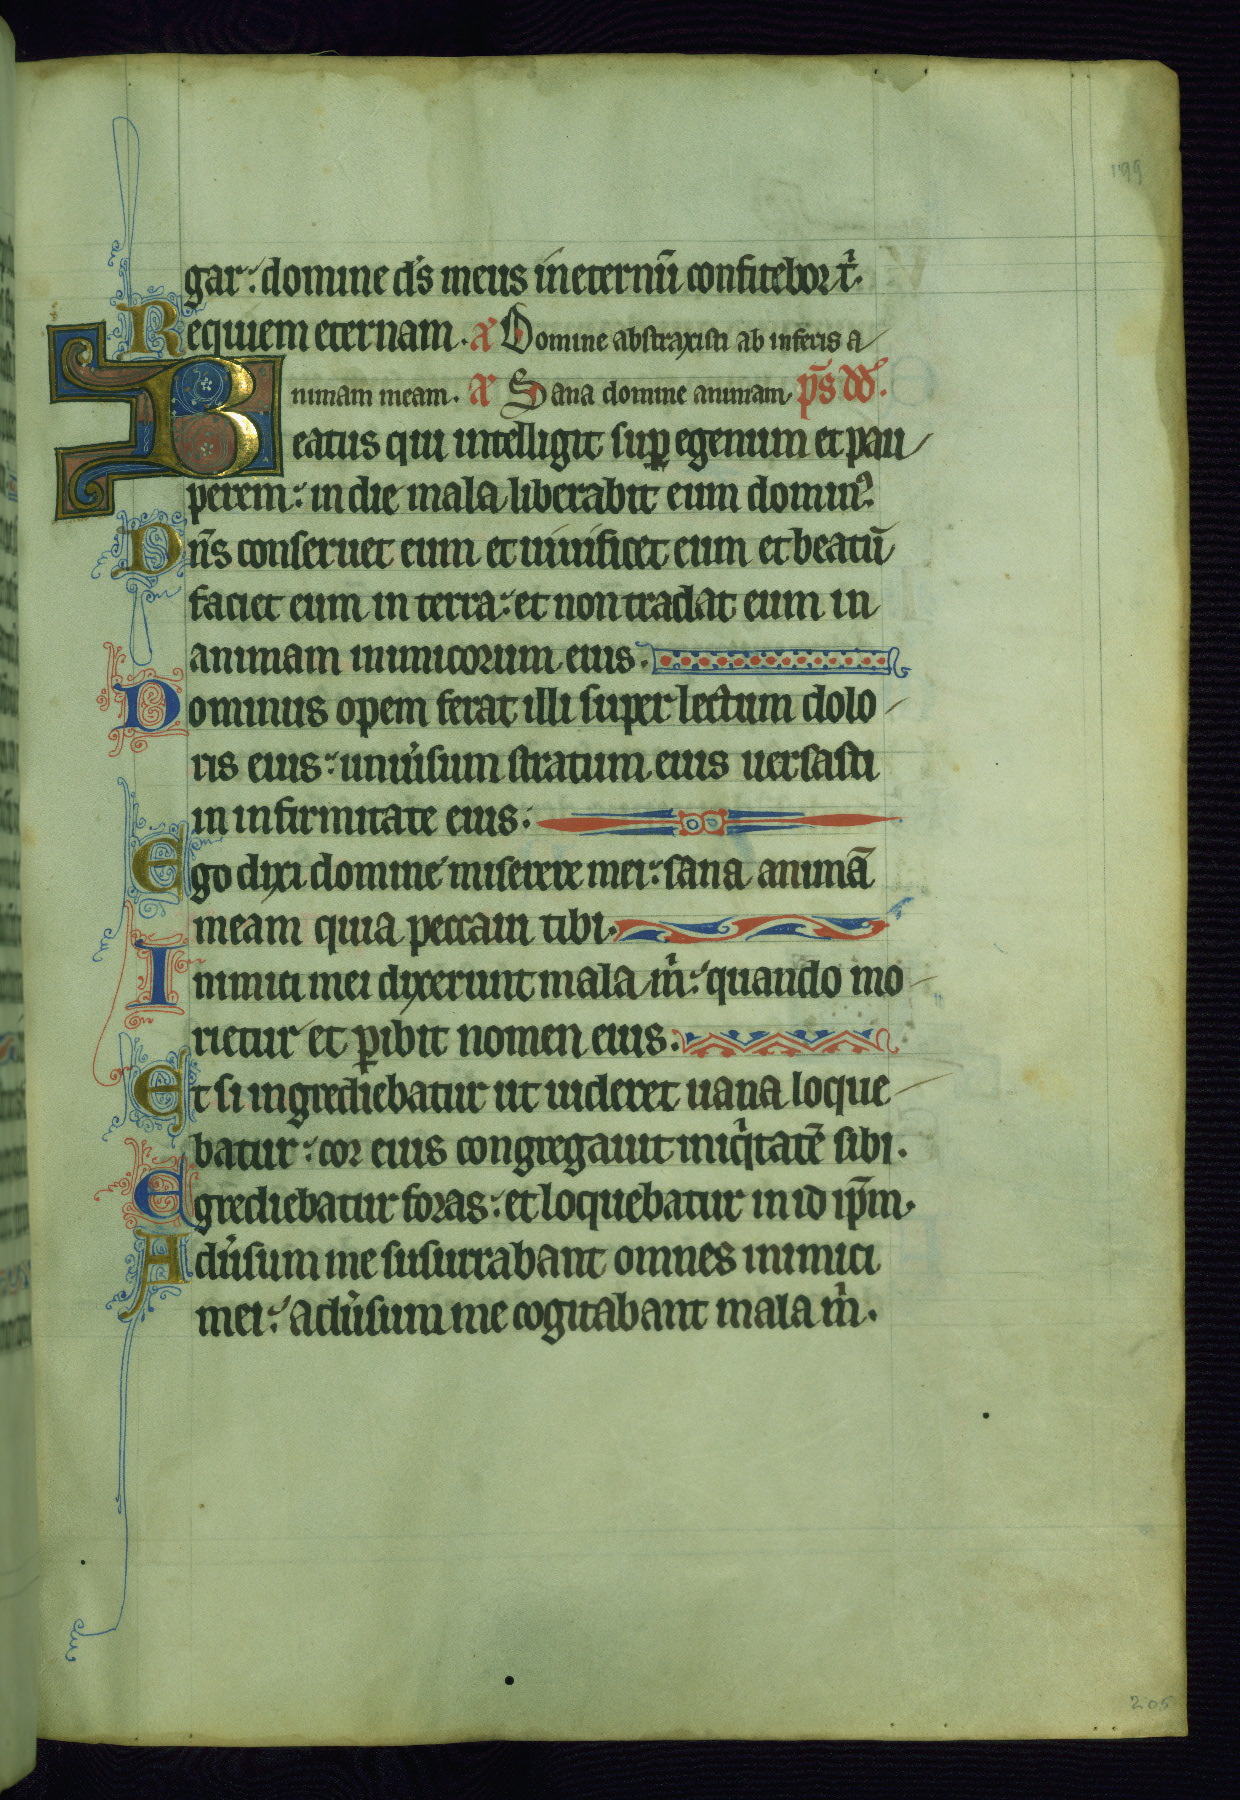 199
gar: domine d̄s meus in eternū confitebor t̾.
Requiem eternam. A Domine abstraxisti ab inferis a
nimam meam. A Sana domine animam p̄s dd̾.
Beatus qui intelligit sup̱ egenum et pau
perem: in die mala liberabit eum dominꝰ.
Dn̄s conseruet eum et uiuificet eum et beatū
faciet eum in terra: et non tradat eum in
animam inimicorum eius.
Dominus opem ferat illi super lectum dolo
ris eius: uniu̾sum stratum eius uersasti
in infirmitate eius.
Ego dixi domine miserere mei: sana animā
meam quia peccaui tibi.
Inimici mei dixerunt mala m̾: quando mo
rietur et ꝑibit nomen eius.
Et si ingrediebatur ut uideret uana loque
batur: cor eius congregauit iniq̾tatē sibi.
Egrediebatur foras: et loquebatur in id ip̄m.
Adu̾sum me susurrabant omnes inimici
mei: adu̾sum me cogitabant mala m̾.
205